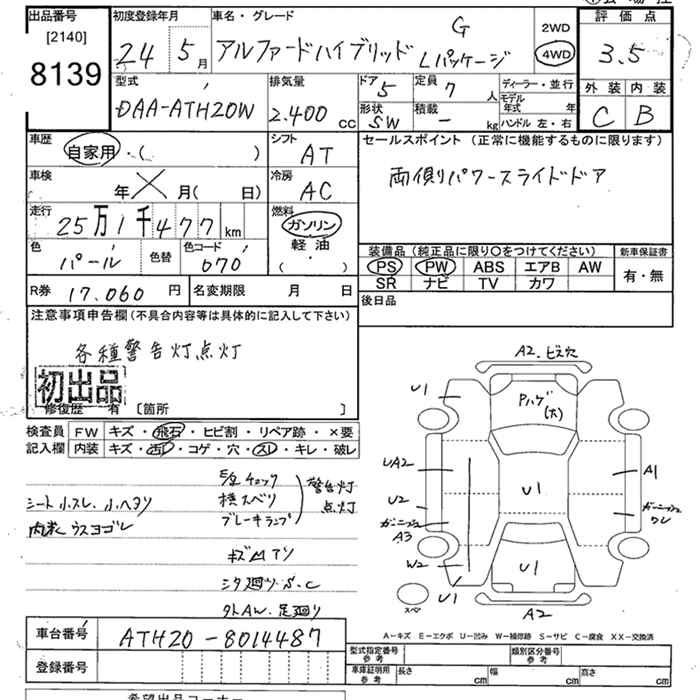 出品番号 初度登録年月 車名・グレード 評価点
[2140]
8139
24 5月 アルファードハイブリッド G Lパッケージ 2WD 4WD 3.5
型式 排気量 ドア 5 定員 7人 ディーラー・並行 外装 内装
DAA-ATH20W 2.400cc 形状 SW 積載 - kg モデル年式 年 ハンドル 左・右 C B
車歴 シフト セールスポイント (正常に機能するものに限ります)
自家用・( ) AT
車検 冷房 両側パワースライドドア
年 月( 日) AC
走行 燃料
25万1千477km ガソリン
軽油
( ・ )
色 パール 色替 色コード 070
装備品 (純正品に限り○をつけてください) 新車保証書
PS PW ABS エアB AW 有・無
SR ナビ TV カワ
R券 17.060円 名変期限 月 日 後日品
注意事項申告欄(不具合内容等は具体的に記入して下さい)
各種警告灯点灯
初出品
修復歴 有 [箇所 ]
検査員 FW キズ・飛石・ヒビ割・リペア跡・×要
記入欄 内装 キズ・汚レ・コゲ・穴・スレ・キレ・破レ
シート小スレ、小ヘタリ
内装ウスヨゴレ
E/gチェック
横スベリ
ブレーキランプ
警告灯
点灯
キズ凹アリ
シタ廻りS.C
外AW、足廻り
A2.ビス穴
U1
Pハゲ
(大)
UA2
A1
U2
U1
ガーニッシュ
ワレ
ガーニッシュ
A3
W2
U1
U1
スペア
A2
A-キズ E-エクボ U-凹み W-補修跡 S-サビ C-腐食 XX-交換済
車台番号 ATH20-8014487
登録番号
型式指定番号 参考 類別区分番号 参考
車庫証明用 参考 長さ cm 幅 cm 高さ cm
希望出品コーナー